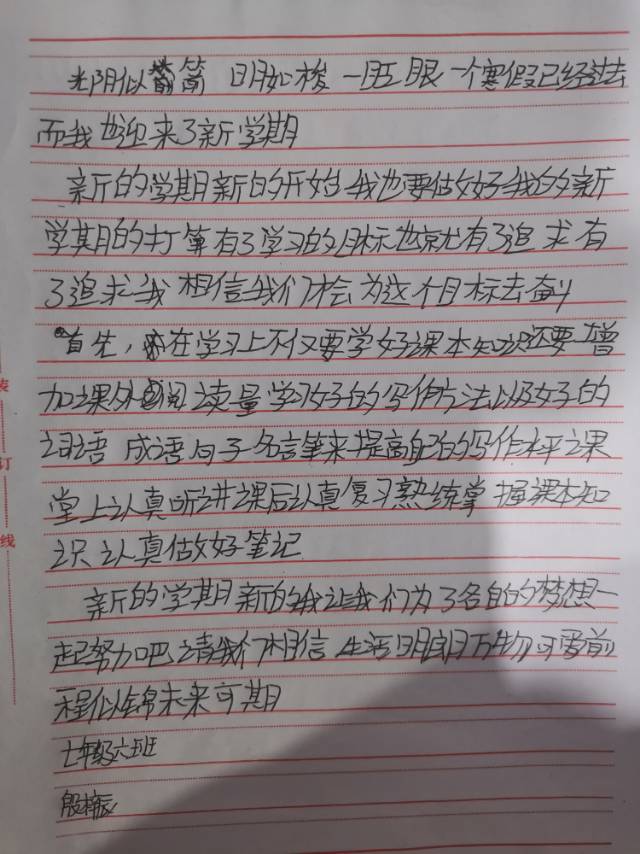 光阴似箭 日月如梭 一眨眼一个寒假已经过去
而我也迎来了新学期
新的学期新的开始我也要做好我的新
学期的打算有了学习的目标也就有了追求有
了追求我相信我们会为这个目标去奋斗
首先，在学习上不仅要学好课本知识还要增
加课外阅读量学习好的写作方法以及好的
词语 成语句子名言笔来提高自己的写作水平课
堂上认真听讲课后认真复习熟练掌握课本知
识认真做好笔记
新的学期新的我让我们为了各自的梦想一
起努力吧请我们相信生活明朗万物可爱前
程似锦未来可期
七年级六班
殷
装
订
线